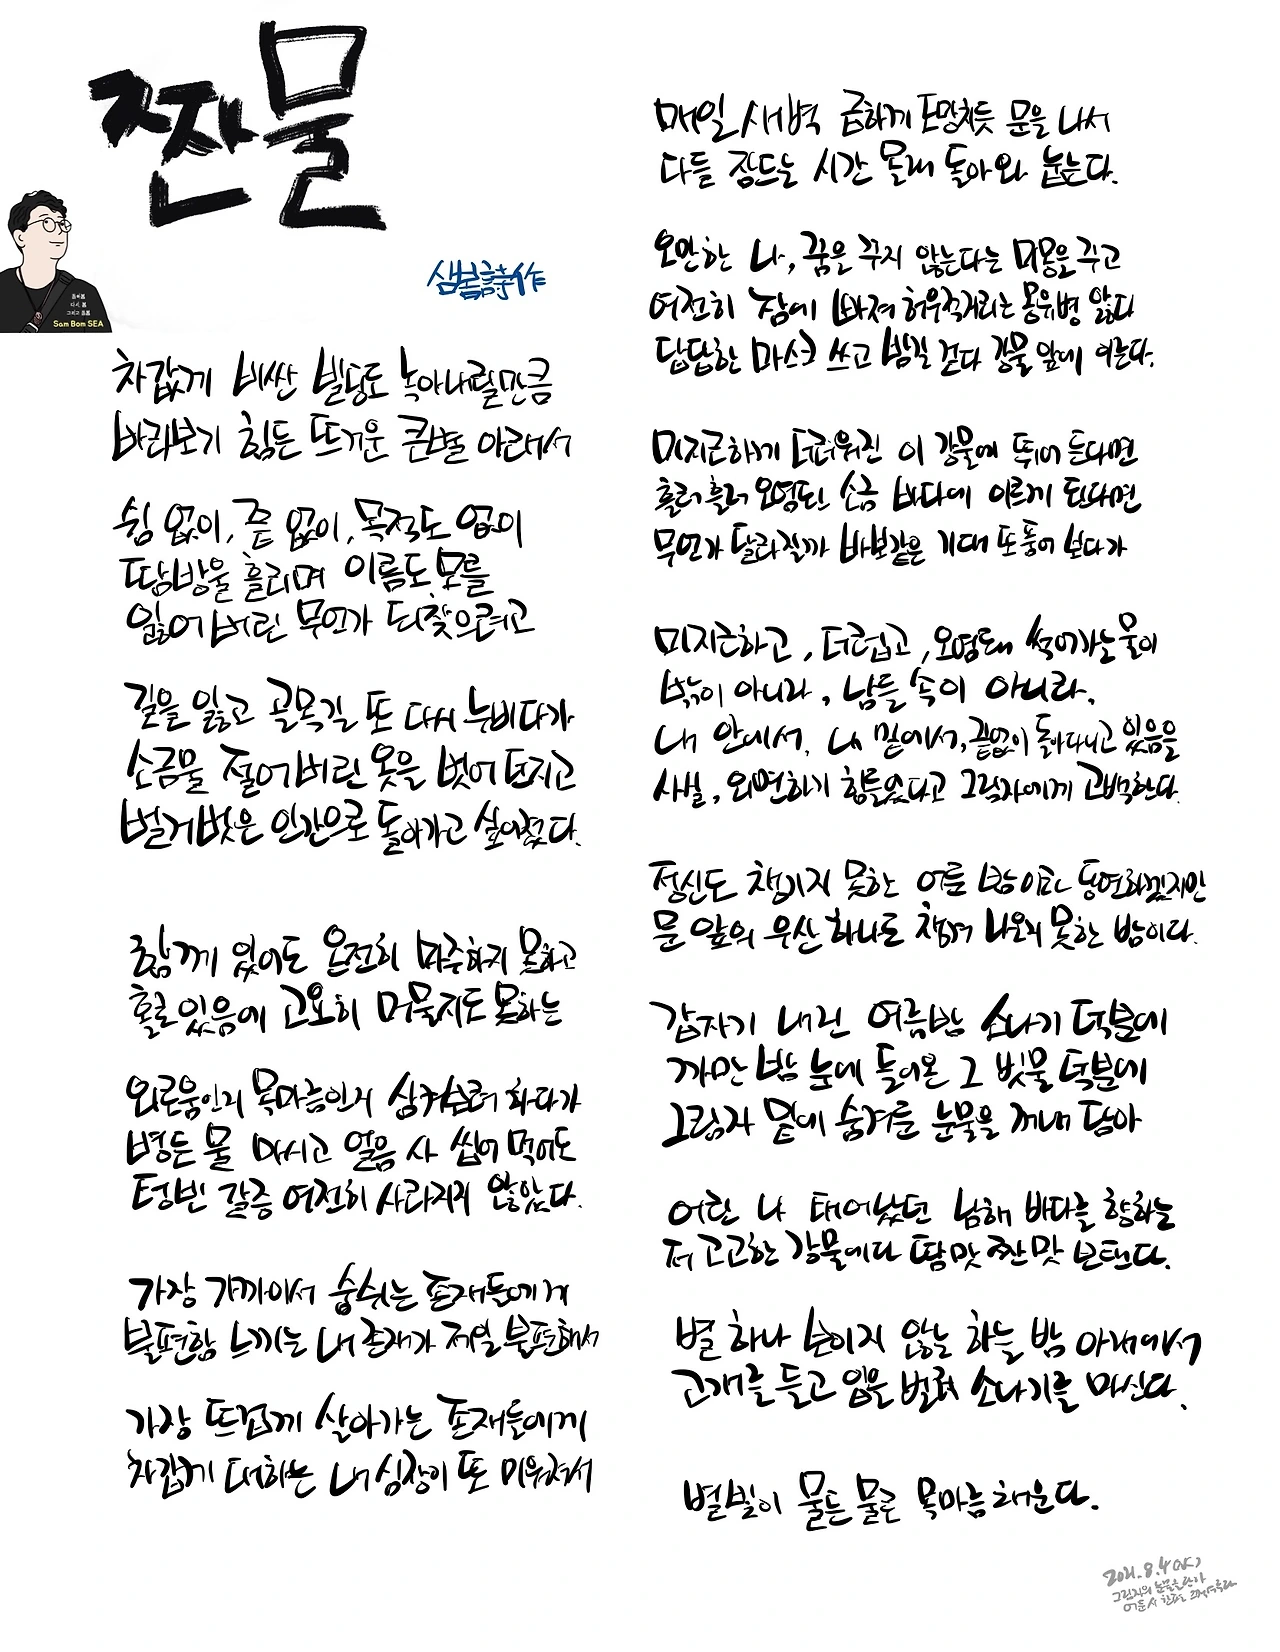 짠물
샘봄詩作
읽어봄
다시 봄
그리고 봄봄
Sam Bom SEA
차갑게 비싼 빌딩도 녹아내릴만큼
바라보기 힘든 뜨거운 큰별 아래서
쉼 없이, 쫓 없이, 목적도 없이
땀방울 흘리며 이름도 모를
잃어버린 무언가 되찾으려고
길을 잃고 골목길 또 다시 누비다가
소금물 절어버린 옷을 벗어 던지고
벌거벗은 인간으로 돌아가고 싶어졌다.
함께 있어도 온전히 마주하지 못하고
홀로 있음에 고요히 머물지도 못하는
외로움인지 목마름인지 삼켜보려 하다가
병든 물 마시고 얼음 사 씹어 먹어도
텅빈 갈증 여전히 사라지지 않았다.
가장 가까이서 숨쉬는 존재들에게
불편함 느끼는 내 존재가 제일 불편해서
가장 뜨겁게 살아가는 존재들에게
차갑게 대하는 내 심장이 또 미워져서
매일 새벽 급하게 도망치듯 문을 나서
다들 잠드는 시간 몰래 돌아와 눕는다.
오만한 나, 꿈을 꾸지 않는다는 미몽을 꾸고
여전히 잠에 빠져 허우적거리는 몽유병 앓다
답답한 마스크 쓰고 밤길 걷다 강물 앞에 이른다.
미지근하게 더러워진 이 강물에 뛰어 든다면
흘러 흘러 오염된 소금 바다에 이르게 된다면
무언가 달라질까 바보같은 기대 또 품어 보다가
미지근하고, 더럽고, 오염돼 썩어가는 물이
밖이 아니라, 남들 속이 아니라,
내 안에서, 내 밑에서, 끝없이 돌아다니고 있음을
사실, 외면하기 힘들었다고 그림자에게 고백한다.
정신도 챙기지 못한 어둔 밤이라 당연하겠지만
문 앞의 우산 하나도 챙겨 나오지 못한 밤이다.
갑자기 내린 여름밤 소나기 덕분에
까만 밤 눈에 들어온 그 빗물 덕분에
그림자 밑에 숨겨둔 눈물을 꺼내 담아
어린 나 태어났던 남해 바다를 향하는
저 고고한 강물에다 땀맛 짠맛 보탠다.
별 하나 보이지 않는 하늘 밤 아래에서
고개를 들고 입을 벌려 소나기를 마신다.
별빛이 물든 물로 목마름 채운다.
2021.8.4(水)
그림자의 눈물을 담아